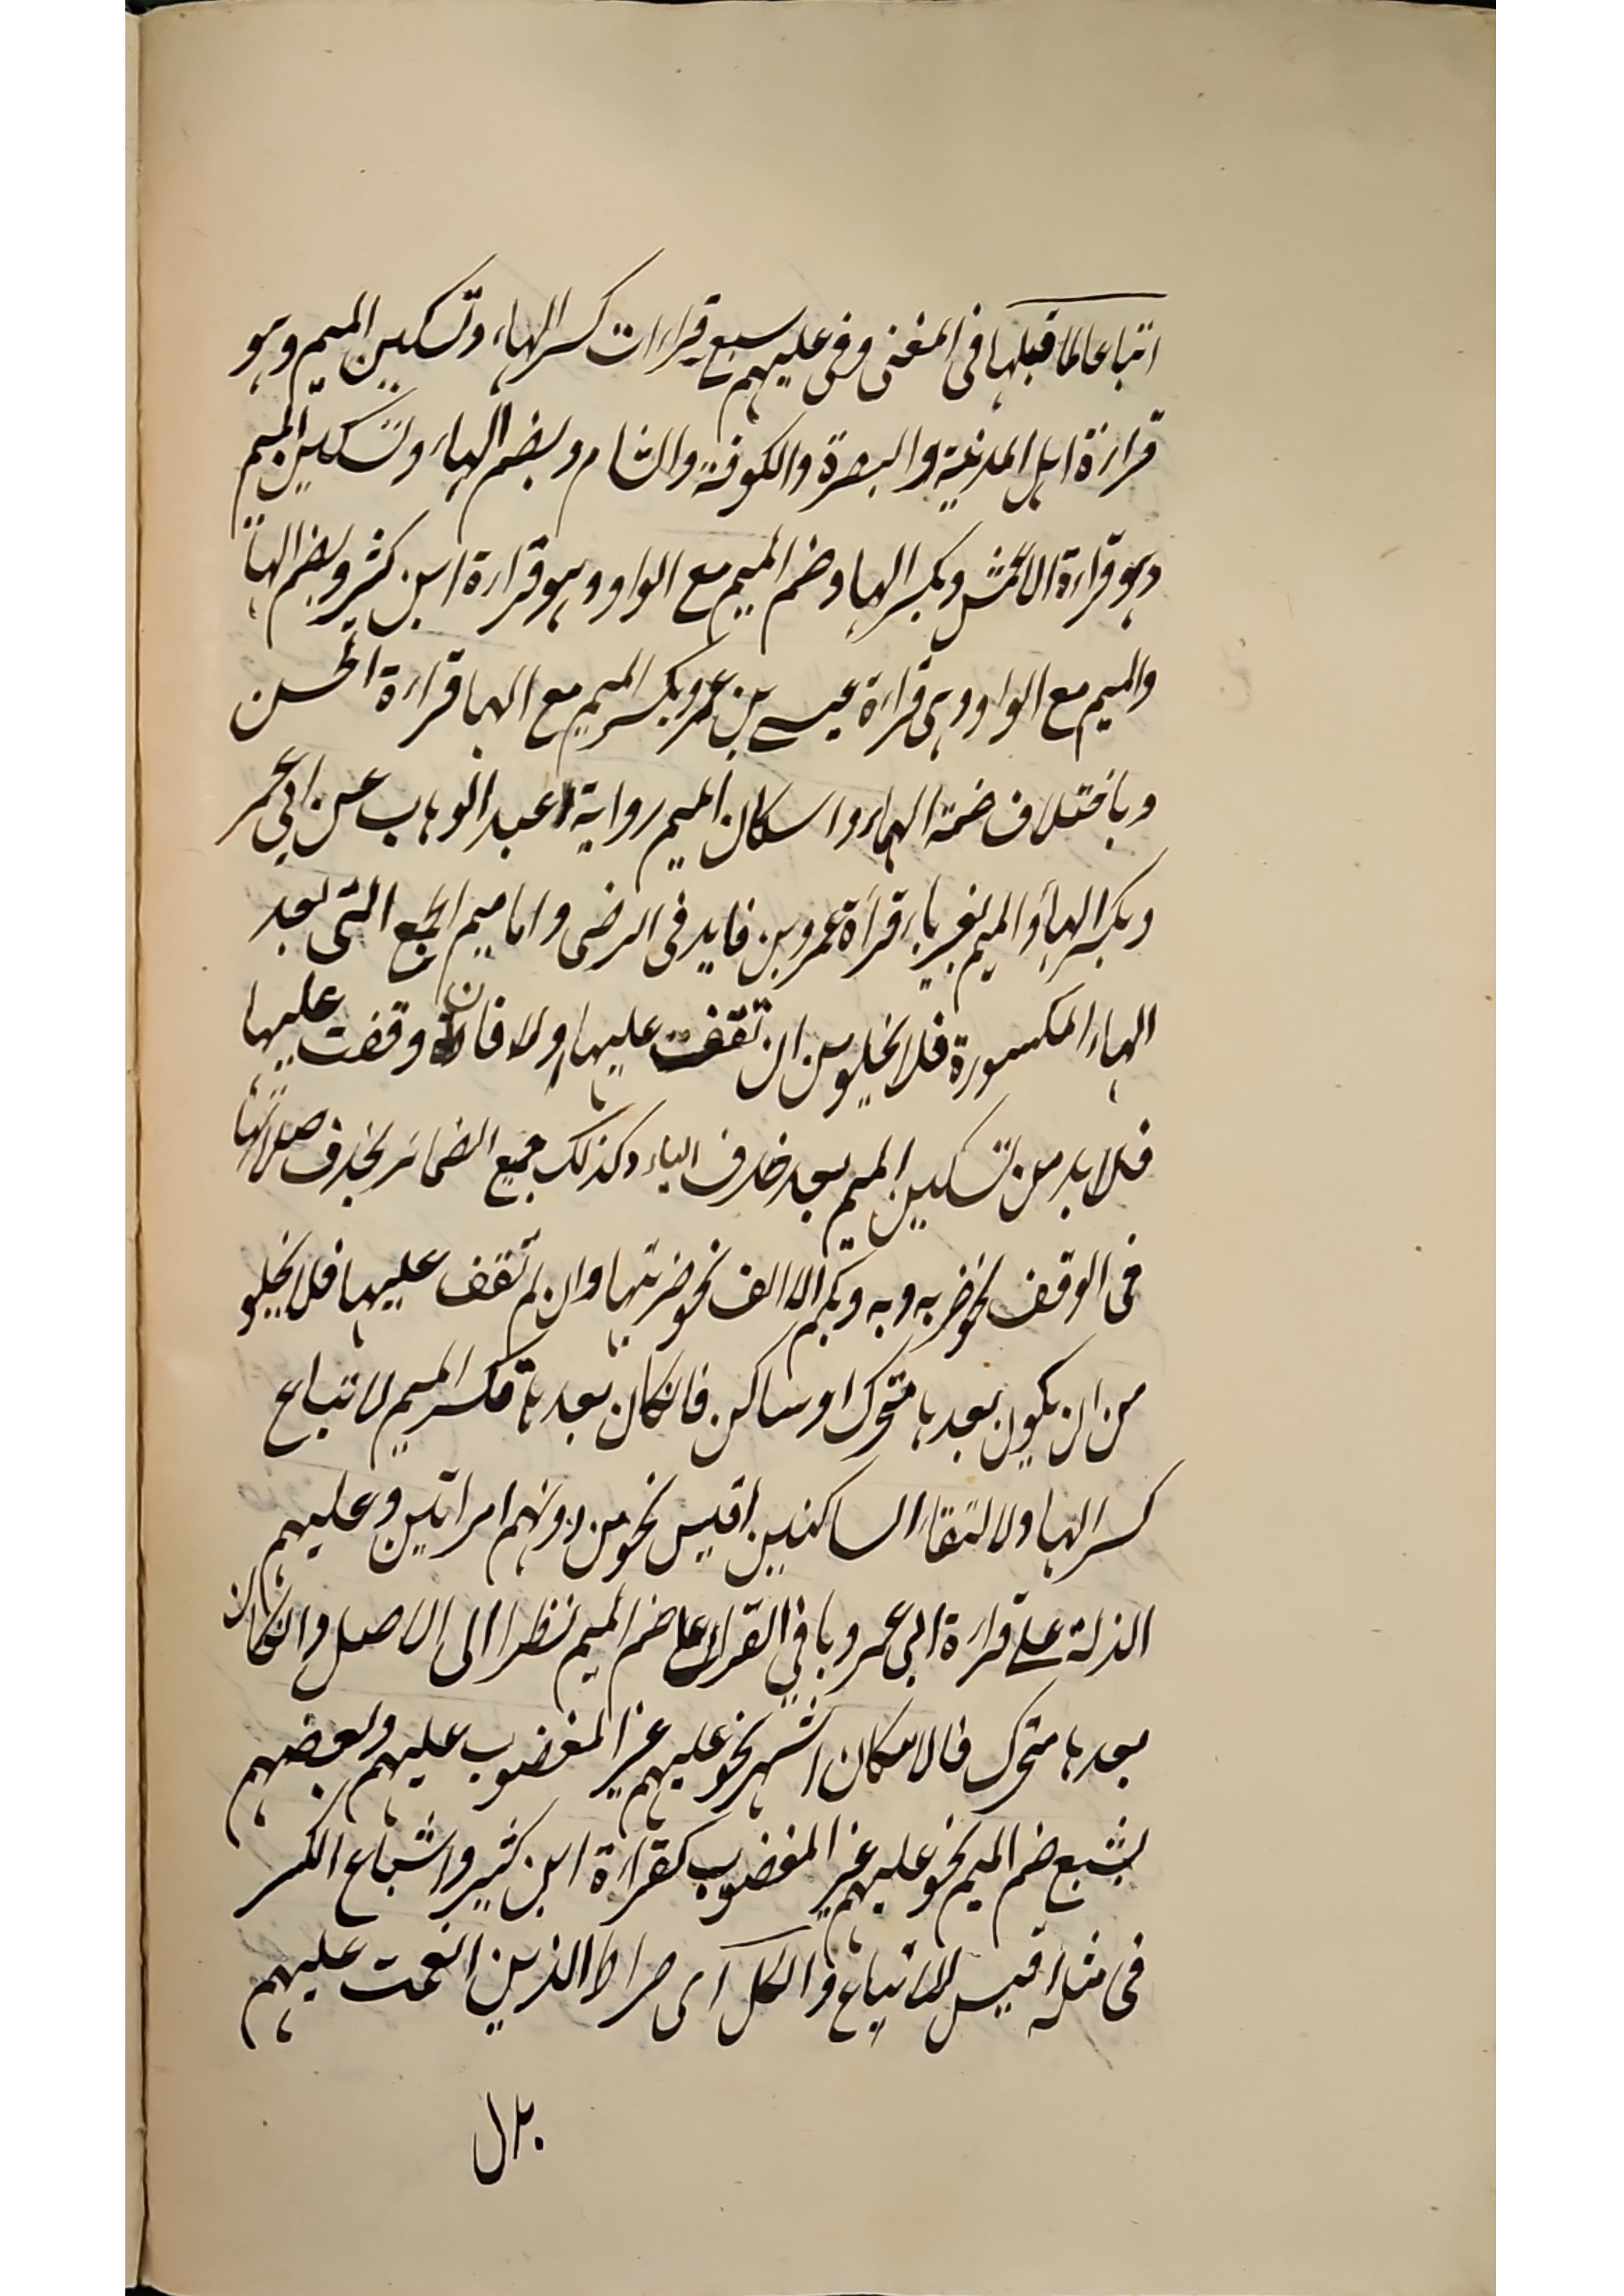 اتباعا لما قبلها فى المغنى وفى عليهم سبع قراءات كسر الهاء وتسكين الميم وهو
قراءة اهل المدينة والبصرة والكوفة والشام وبضم الهاء وتسكين الميم
وهو قراءة الاعمش وبكسر الها وضم الميم مع الواو وهو قراءة ابن كثير وبضم الهاء
والميم مع الواو وهى قراءة عيسى بن عمر وبكسر الميم مع الها قراءة الحسن
وباختلاف ضمة الهاء واسكان الميم رواية عبد الوهاب عن ابى عمر
وبكسر الهاء والميم بغير ياء قراءة عمرو بن فايد فى الرضى واما ميم الجمع التى بعد
الهاء المكسورة فلا يخلو من ان تقف عليها ولا فان وقفت عليها
فلا بد من تسكين الميم بعد حذف الياء وكذلك جميع الضمائر يحذف صلاتها
فى الوقف نحو ضربه وبه وبكم الا الف نحو ضربتها وان لم تقف عليها فلا يخلو
من ان يكون بعدها متحرك او ساكن فانكان بعدها فكسر الميم لاتباع
كسر الها ولالتقاء الساكنين اقيس نحو من دونهم امراتين وعليهم
الذلة على قراءة ابى عمر وباقى القراء على ضم الميم نظرا الى الاصل وانكان
بعدها متحرك فالاسكان اشهر نحو عليهم غير المغضوب عليهم وبعضهم
يشبع ضم الميم نحو عليهم غير المغضوب كقراءة ابن كثير واشباع الكسر
فى مثله اقيس للاتباع والكل اى صراط الذين انعمت عليهم
بدل